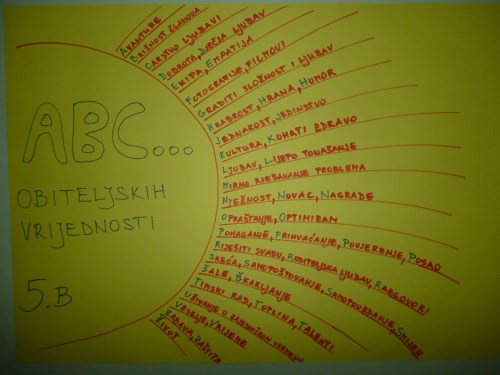 ABC...
OBITELJSKIH
VRIJEDNOSTI
5.B
AVANTURE
BRIŽNOST ČLANOVA
CARSTVO LJUBAVI
DOBROTA, DJEČJA LJUBAV
EKIPA, EMPATIJA
FOTOGRAFIJE, FILMOVI
GRADITI SLOŽNOST I LJUBAV
HRABROST, HRANA, HUMOR
JEDNAKOST, JEDINSTVO
KULTURA, KUHATI ZDRAVO
LJUBAV, LIJEPO PONAŠANJE
MIRNO RJEŠAVANJE PROBLEMA
NJEŽNOST, NOVAC, NAGRADE
OPRAŠTANJE, OPTIMIZAM
POMAGANJE, PRIHVAĆANJE, POVJERENJE, POSAO
RIJEŠITI SVAĐU, RODITELJSKA LJUBAV, RAZGOVORI
SREĆA, SAMOPOŠTOVANJE, SAMOPOUZDANJE, SMIJEH
ŠALE, ŠKAKLJANJE
TIMSKI RAD, TOPLINA, TALENTI
UŽIVANJE U ZAJEDNIČKOM VREMENU
VESELJE, VALJENE
ZABAVA, ZAŠTITA
ŽIVOT